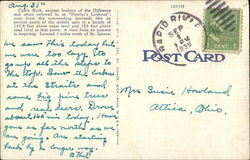 Aug. 31st
Castle Rock, ancient lookout of the Ojibways
and often referred to as "Pontiac's Lookout,"
rises from the surrounding lowlands like an
ancient castle of the middle ages to a height of
195.8 feet above water level and 183 feet above
road level at that point. A view from its summit
is inspiring. Located 3 miles north of St. Ignace.
We saw this today but
were too lazy to
go up all the steps to
the top. Saw the lakes
at the Straits and
some big pine trees
and real deer. Drove
about 160 mi. today. Have
gone as far north as we
are going. Are starting
back by a longer way.
Ethel
RAPID RIVER
SEP
1938
POST CARD
Mrs Susie Howland
Attica, Ohio.